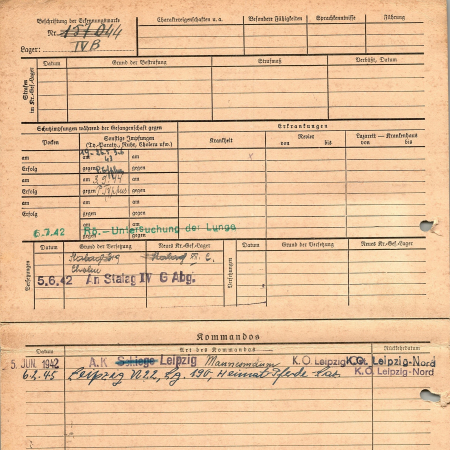 Beschriftung der Erkennungsmarke
Nr.
Lager: IV B
Charaktereigenschaften u. a.
Besondere Fähigkeiten
Sprachkenntnisse
Führung
Strafen im Kr.-Gef.-Lager
Datum
Grund der Bestrafung
Strafmaß
Verbüßt, Datum
Schutzimpfungen während der Gefangenschaft gegen
Erkrankungen
Pocken
Sonstige Impfungen
(Ty.-Paraty., Ruhr, Cholera usw.)
Krankheit
Revier
von bis
Lazarett — Krankenhaus
von bis
am am
Erfolg gegen gegen
am am
Erfolg gegen gegen
am am
Erfolg gegen gegen
am
gegen
6.7.42 Rö.-Untersuchung der Lunge
Versetzungen
Datum
Grund der Versetzung
Neues Kr.-Gef.-Lager
Versetzungen
Datum
Grund der Versetzung
Neues Kr.-Gef.-Lager
Cholm
5.6.42 An Stalag IV G Abg.
Kommandos
Datum
Art des Kommandos
Rückkehrdatum
5. JUN. 1942 A.K. Leipzig K.O. Leipzig K.O. Leipzig-Nord
6.2.45 Leipzig K.O. Leipzig-Nord